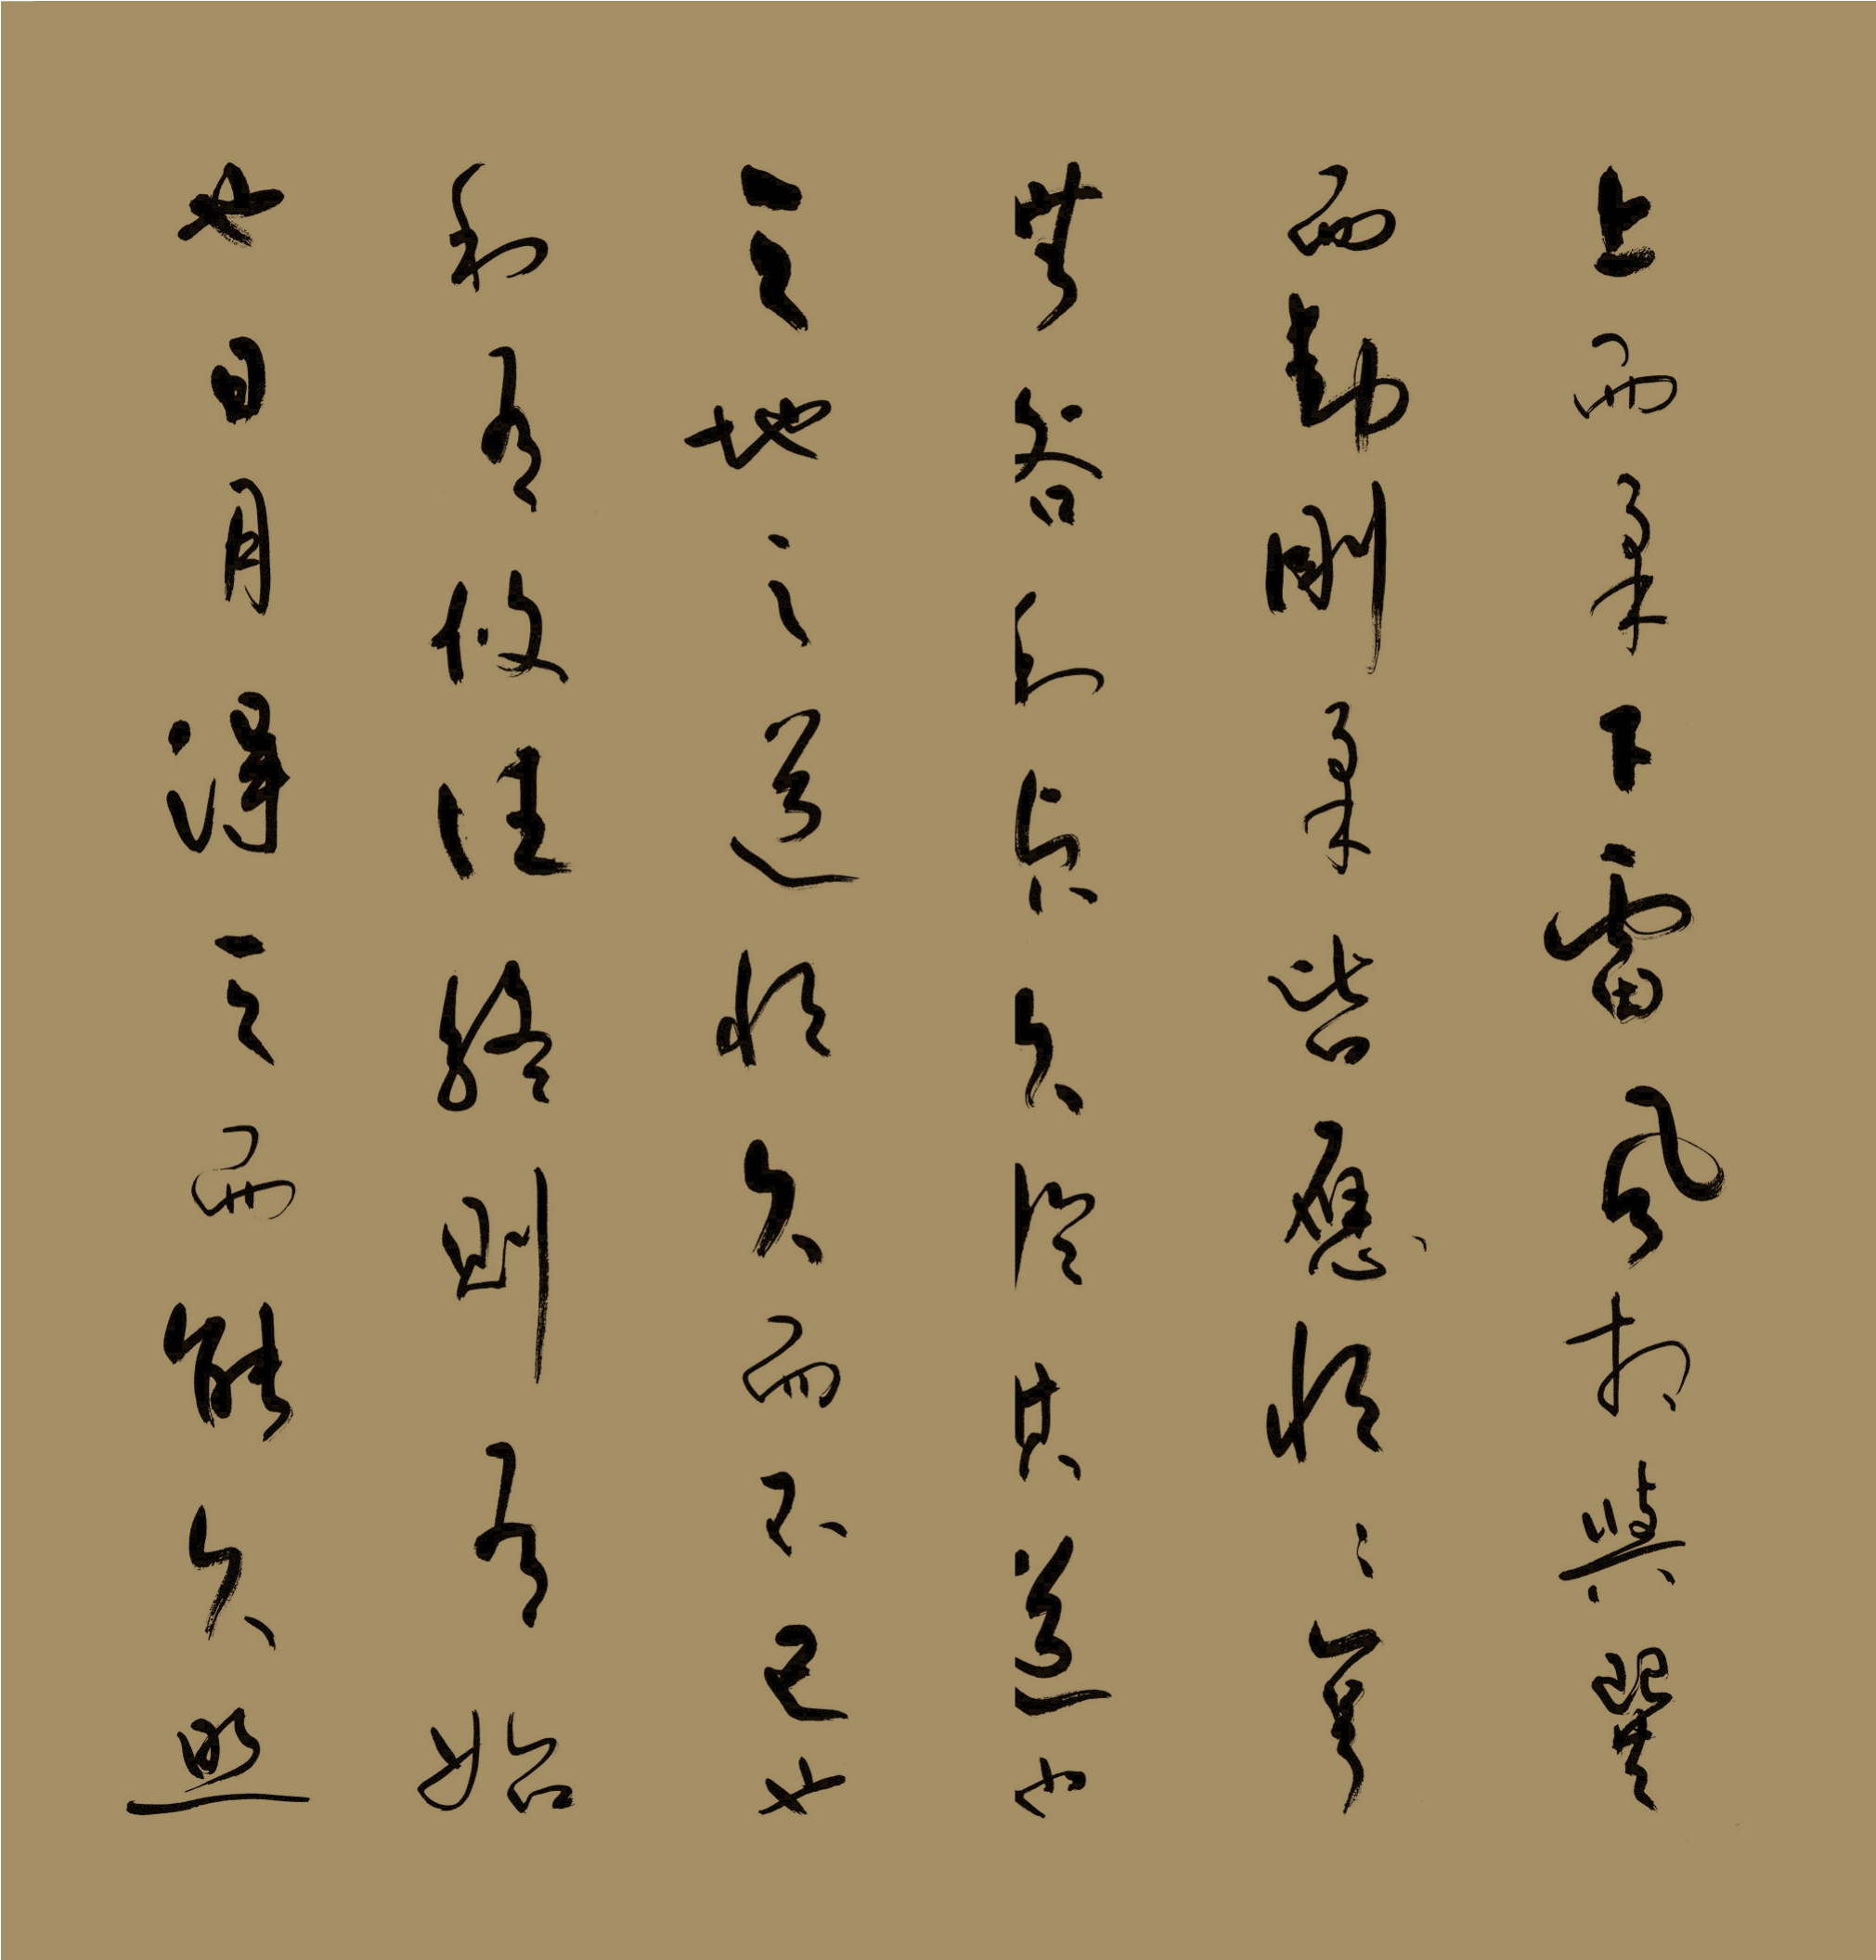 上而柔下雷風相與巽
而動剛柔皆應恆〻亨
無咎利貞久於其道也
天地之道恆久而不已也
利有攸往終則有始
也日月得天而能久照